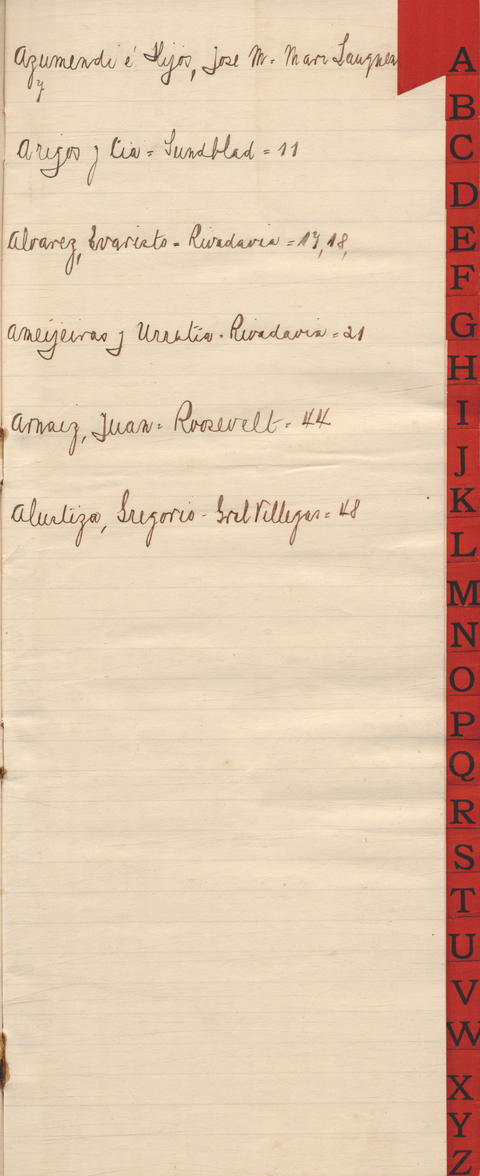 Azumendi é Hijos, Jose M. Mari Lauquen
7
Arijos y Cia = Sundblad = 11
Alvarez, Evaristo - Rivadavia = 17, 18,
Ameijeiras y Urrutia - Rivadavia = 21
Arnaez, Juan = Roosevelt = 44
Alustiza, Gregorio - Gral Villegas = 48
A
B
C
D
E
F
G
H
I
J
K
L
M
N
O
P
Q
R
S
T
U
V
W
X
Y
Z